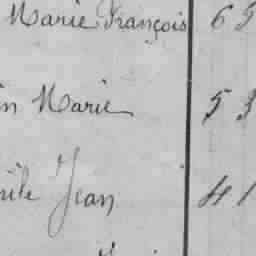 Marie François 6 5
in Marie 5 3
Jean 41